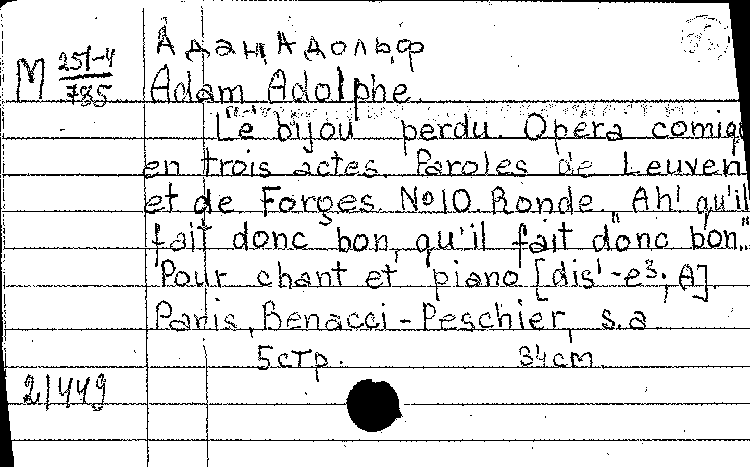 Адам, Адольф
M 251-4/785
Adam Adolphe
"Le bijou" perdu. Opera comiq
en trois actes. Paroles de Leuven
et de Forges. №10. Ronde "Ah! qu'il
fait donc bon, qu'il fait donc bon"..
Pour chant et piano [dis¹-e³; A].
Paris, Benacci-Peschier, s.a
5 стр. 34 cm.
2/449